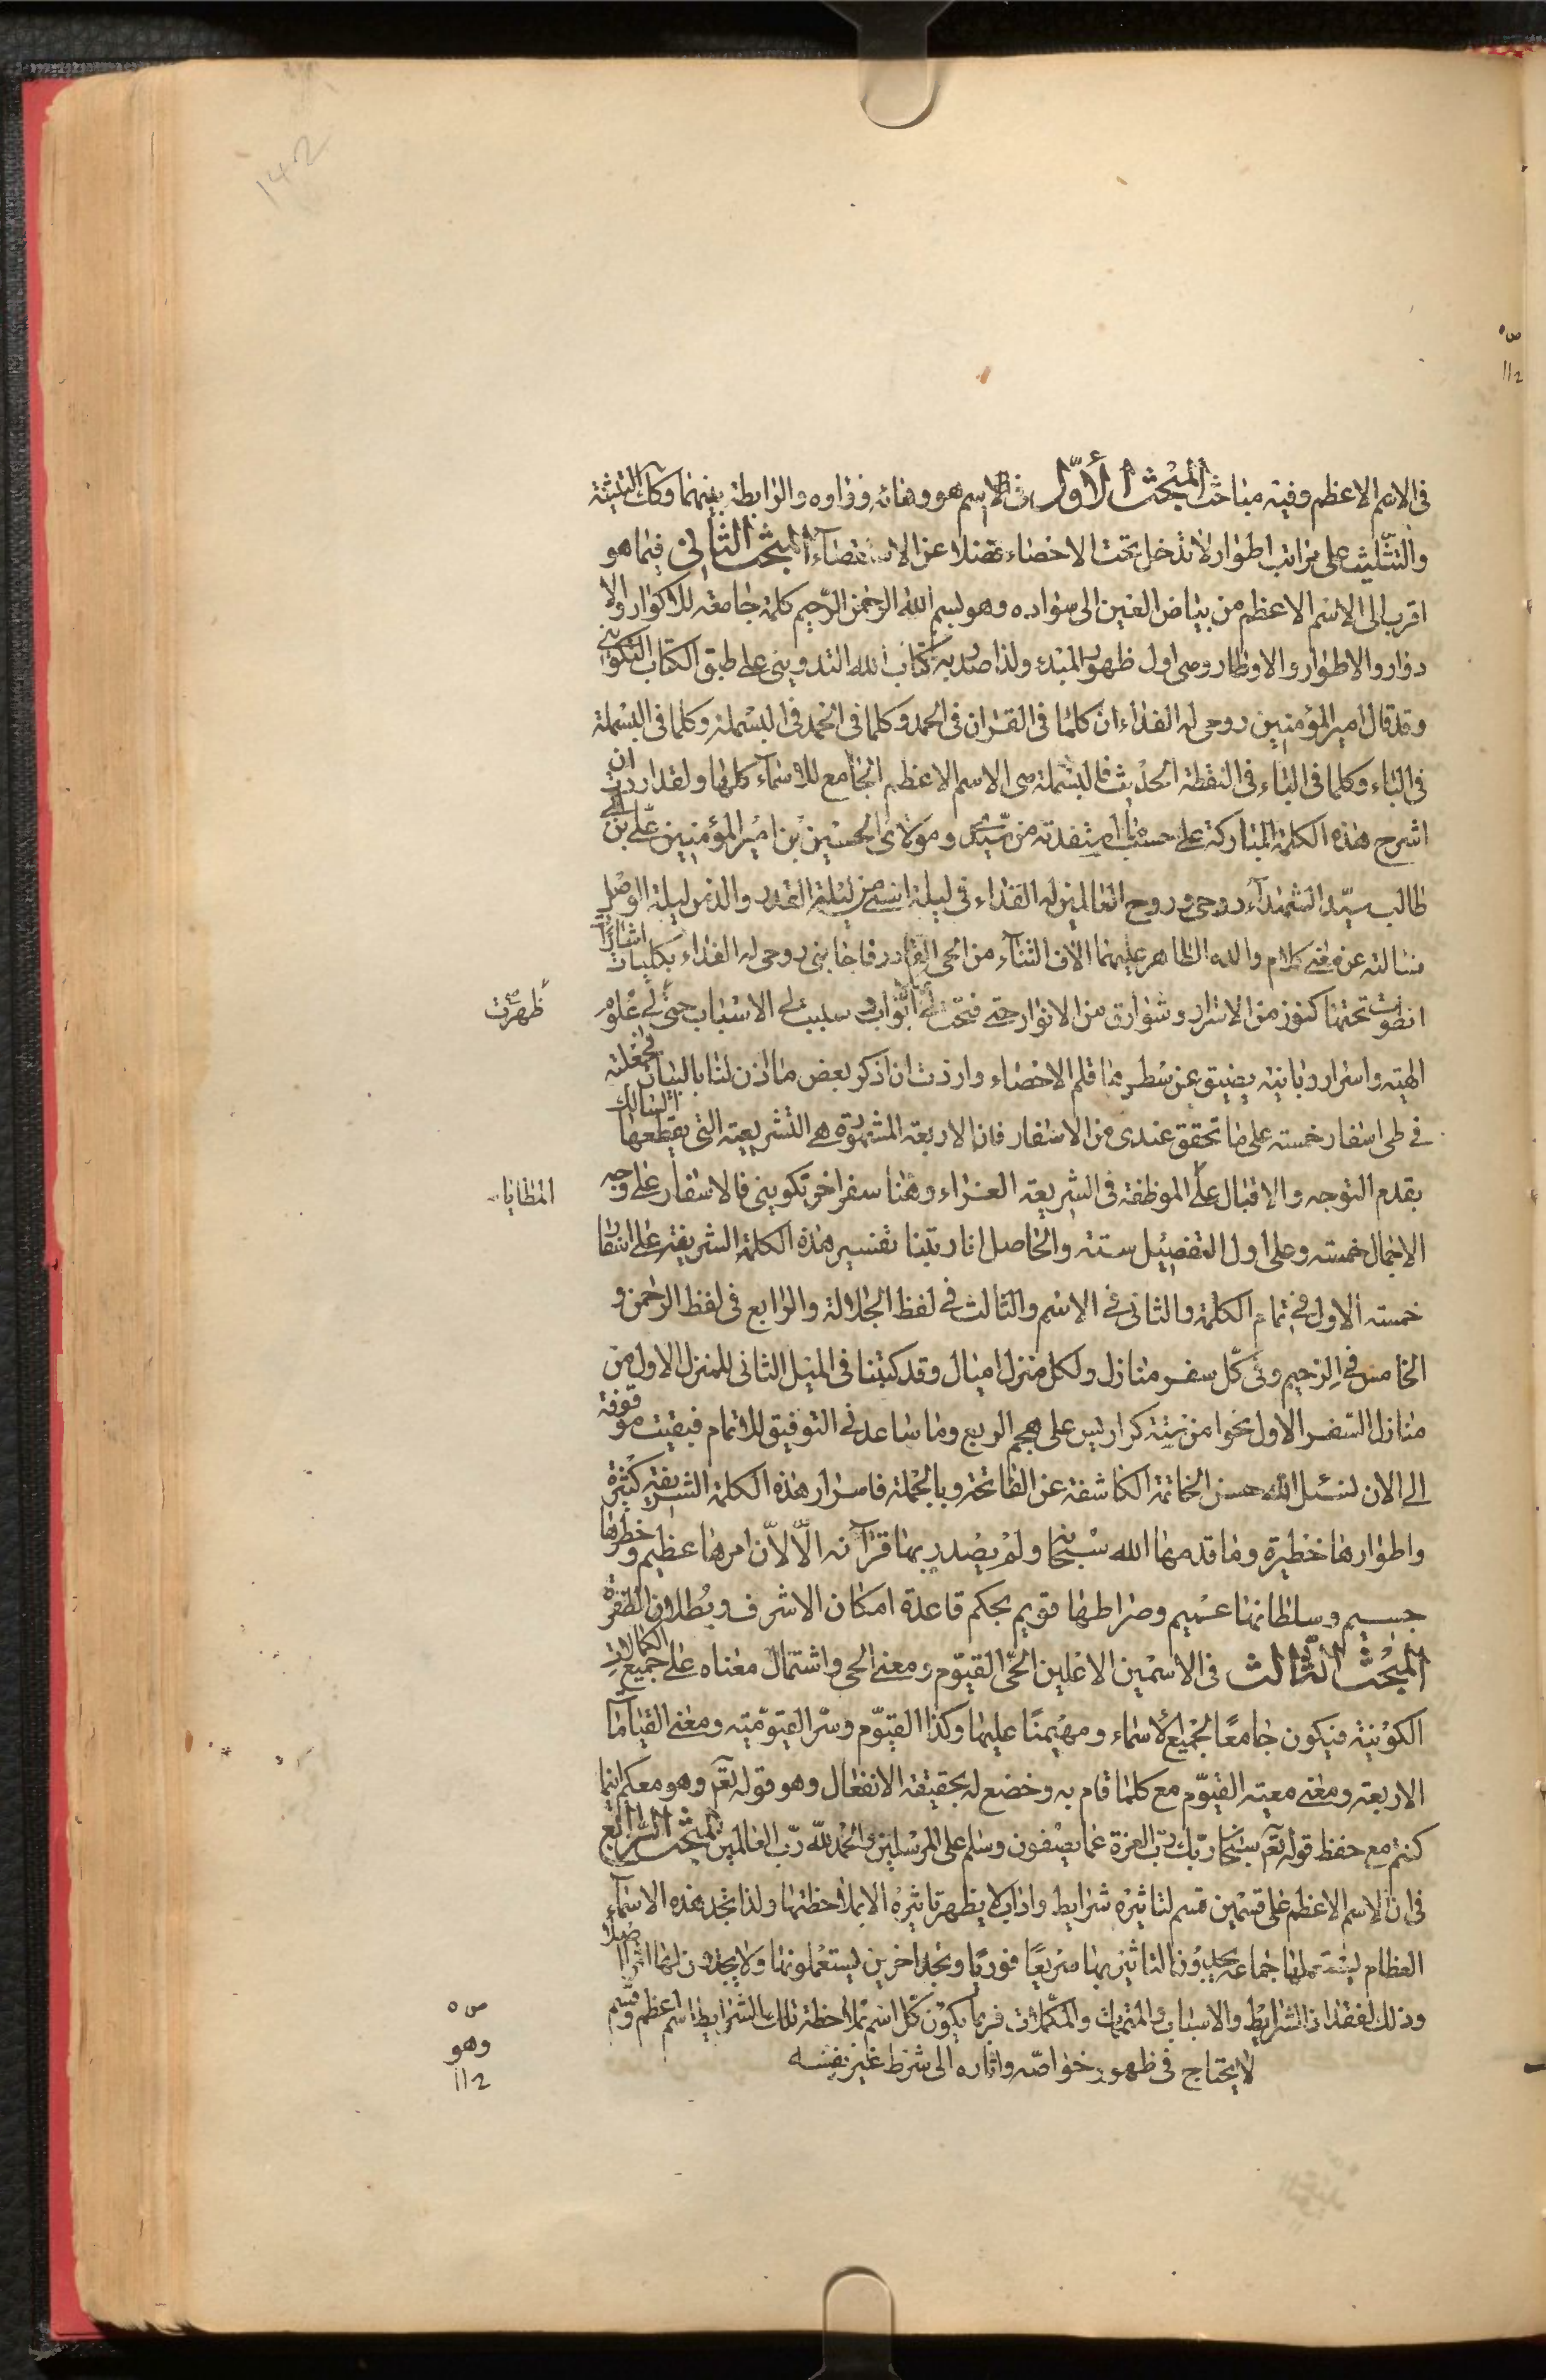 142
في الاسم الاعظم وفيه مباحث المبحث الأول في الاسم هو وهائه وواوه والرابطة بينهما وكك التثنية
والتثليث على مراتب اطوار لا تدخل تحت الاحصاء فضلا عن الاستقصاء المبحث الثاني فيما هو
اقرب الى الاسم الاعظم من بياض العين الى سواده وهو بسم الله الرحمن الرحيم كلمة جامعة للاكوار والا
دوار والاطوار والاوطار وهى اول ظهور المبدء ولذا صدر به كتاب الله التدويني على طبق الكتاب التكويني
وقد قال امير المؤمنين روحى له الفداء ان كلما فى القران فى الحمد وكلما فى الحمد فى البسملة وكلما فى البسملة
فى الباء وكلما فى الباء فى النقطة الحديث فالبسملة هى الاسم الاعظم الجامع للاسماء كلها ولقد اردت ان
اشرح هذه الكلمة المباركة على حسب ما استفدته من سيدى ومولاى الحسين بن امير المؤمنين على بن ابى
طالب سيد الشهداء روحى وروح العالمين له الفداء فى ليلة اسنى من ليلة القدر والذ من ليلة الوصل
سالته عن معنى كلام والده الظاهر عليهما الاف الثناء من الحى القادر فاجابنى روحى له الفداء بكلمات اشارات
انطوت تحتها كنوز من الاسرار وشوارق من الانوار حتى فتحت لى ابواب وسببت لى الاسباب حتى لى علوم
ظهرت
الهية واسرار ربانية يضيق عن سطرها قلم الاحصاء واردت ان اذكر بعض ما اذن لنا بالبيان فجعلته
فى طى اسفار خمسة على ما تحقق عندى من الاسفار فان الاربعة المشهورة هى التشريعية التى يقطعها السالك
بقدم التوجه والاقبال على الموظفة فى الشريعة الغراء وهنا سفر اخر تكوينى فالاسفار على وجه
المطايا
الاجمال خمسة وعلى اول التفصيل ستة والحاصل انا رتبنا تفسير هذه الكلمة الشريفة على اسفار
خمسة الاول فى تمام الكلمة والثانى فى الاسم والثالث فى لفظ الجلالة والرابع فى لفظ الرحمن و
الخامس فى الرحيم وفى كل سفر منازل ولكل منزل اميال وقد كتبنا فى الميل الثانى للمنزل الاول من
منازل السفر الاول نحوا من ستة كراريس على هجم الربع وما ساعدنى التوفيق للاتمام فبقيت موقوفة
الى الان لنسئل الله حسن الخاتمة الكاشفة عن الفاتحة وبالجملة فاسرار هذه الكلمة الشريفة كثيرة
واطوارها خطيرة وما قدمها الله سبحانه ولم يصدر بها قرآنه الّا لانّ امرها عظيم وخطرها
جسيم وسلطانها عميم وصراطها قويم بحكم قاعدة امكان الاشرف وبطلان الطفرة
المبحث الثالث فى الاسمين الاعلين الحى القيوم ومعنى الحى واشتمال معناه على جميع الكمالات
الكونية فيكون جامعًا لجميع الأسماء ومهيمنًا عليها وكذا القيوم وسر القيومية ومعنى القيامات
الاربعة ومعنى معية القيوم مع كلما قام به وخضع له بحقيقة الانفعال وهو قوله تعالى وهو معكم اينما
كنتم مع حفظ قوله تعالى سبحان ربك رب العزة عما يصفون وسلم على المرسلين والحمد لله رب العالمين المبحث الرابع
فى ان الاسم الاعظم على قسمين قسم لتاثيره شرايط واداب لا يظهر تاثيره الا بملاحظتها ولذا نجد هذه الاسماء
العظام يستعملها جماعة يجدون التاثير بها سريعًا فوريًا ونجد اخرين يستعملونها ولا يجدون لها اثرًا اصلا
وذلك لفقدان الشرايط والاسباب والمتممات والمكملات فربما يكون كل اسم بملاحظة تلك الشرايط اسم اعظم وقسم
لا يحتاج فى ظهور خواصه واثاره الى شرط غير نفسه
وهو